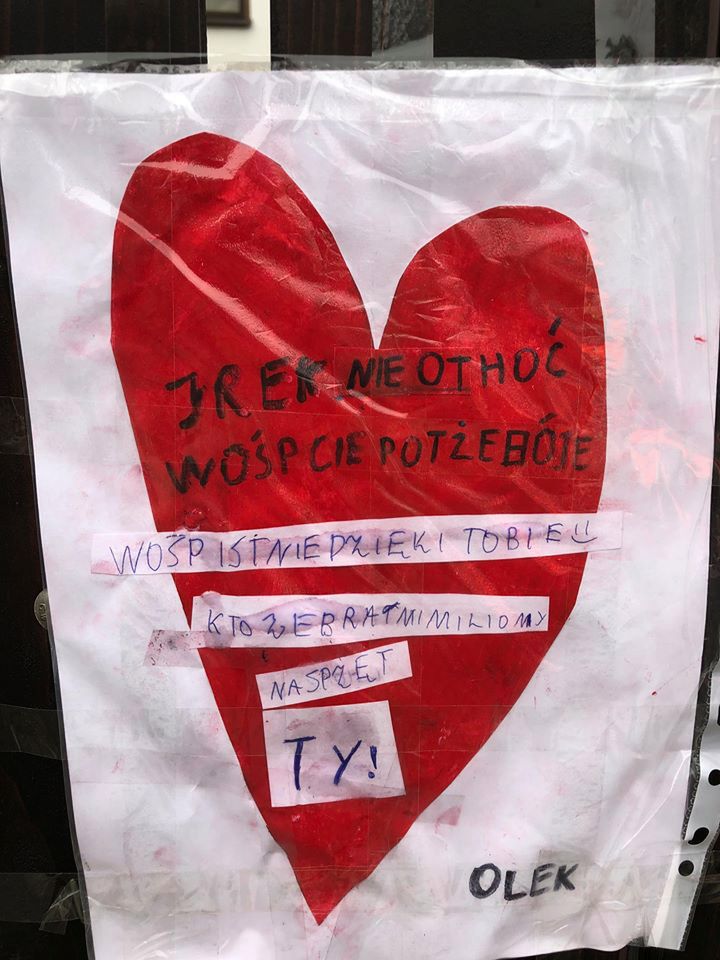 JREK NIE OTHOĆ
WOŚP CIE POTŻEBÓJE
WOŚP ISTNIE DZIĘKI TOBIE
KTO ZEBRAŁ MI MILIOMY
NA SPZĘT
TY!
OLEK